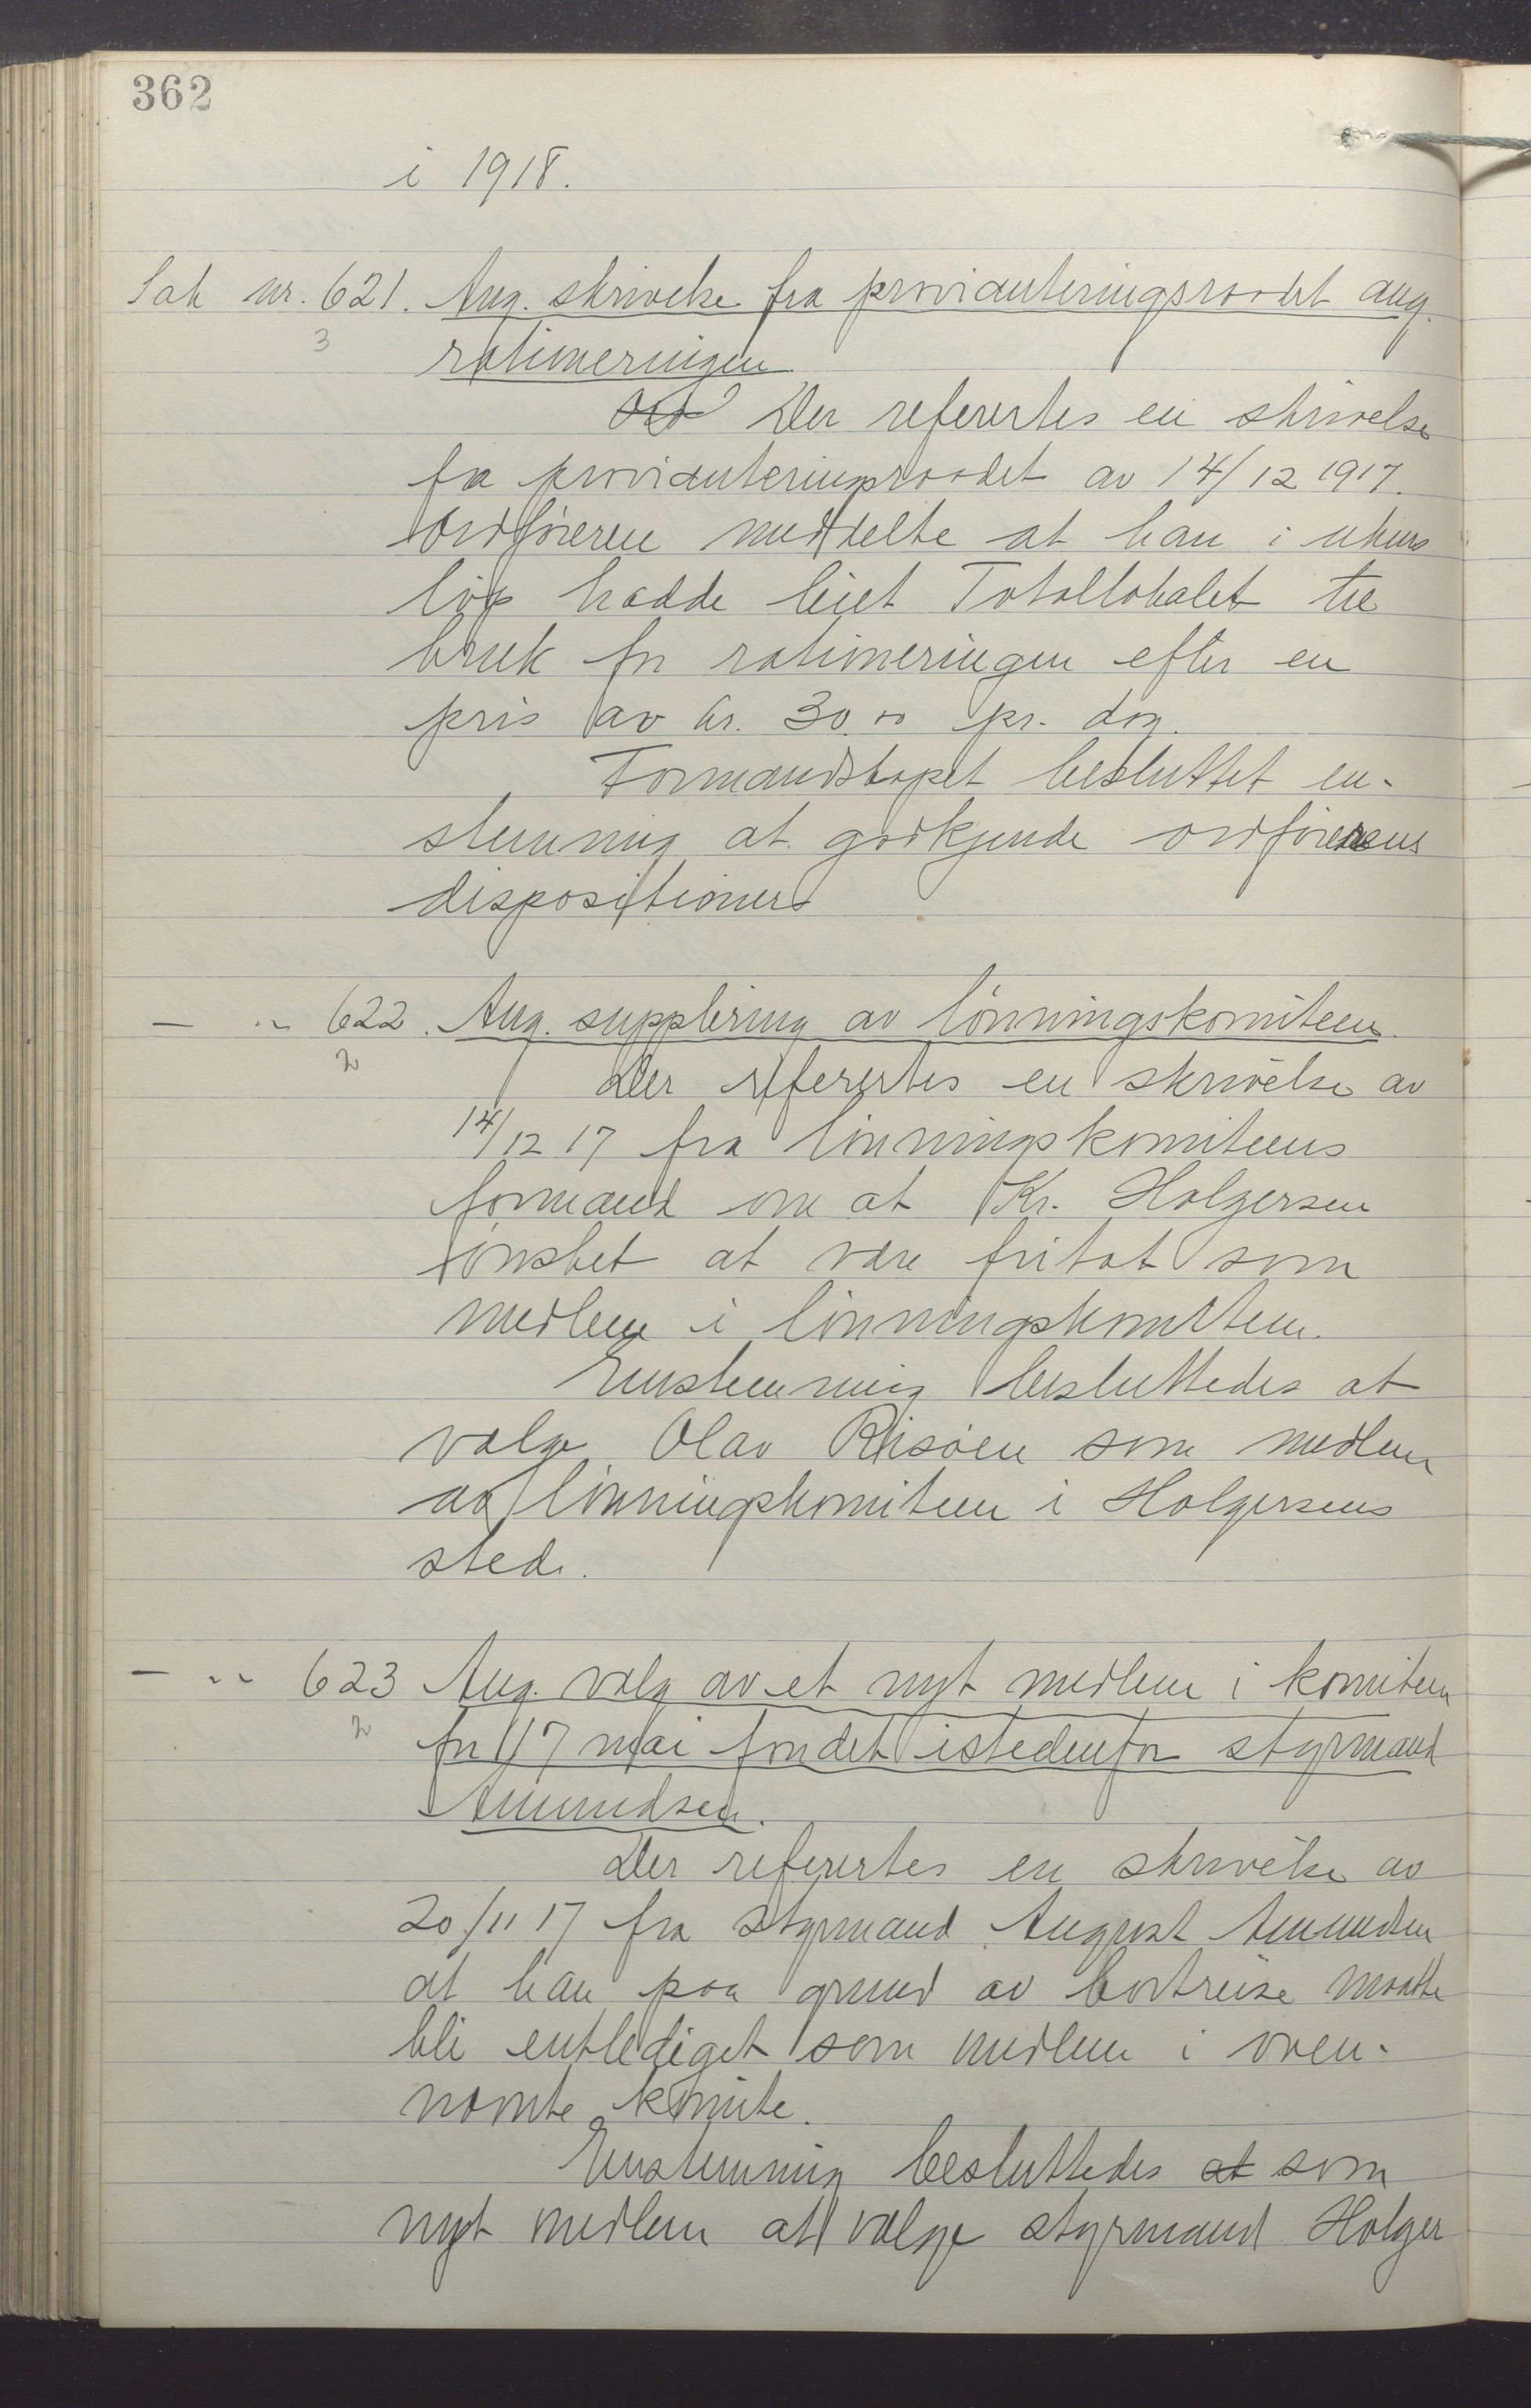 362
i 1918.
Sak nr. 621. Ang. skrivelse fra provianteringsraadet ang.
3
rationeringen
Ord Der refertes en skrivelse
fra provianteringsraadet av 14/12 1917.
Ordføreren meddelte at han i ukens
løp hadde leiet Totallokalet til
bruk for rationeringen efter en
pris av kr. 30.00 pr. dag.
Formandskapet besluttet en-
stemmig at godkjende ordførerens
dispositioner
— " 622. Ang. supplering av lønningskomiteen.
2
Der refertes en skrivelse av
14/12 17 fra lønningskomiteens
formand om at Kr. Holgersen
ønsket at være fritat som
medlem i lønningskomiteen.
Enstemmig besluttedes at
vælge Olav Risøen som medlem
av lønningskomiteen i Holgersens
sted.
— " 623 Ang. valg av et nyt medlem i komiteen
2
for 17 mai fondet istedenfor styrmand
Amundsen.
Der refertes en skrivelse av
20/11 17 fra styrmand August Amundsen
at han paa grund av bortreise maatte
bli entlediget som medlem i oven-
nævnte komite.
Enstemmig besluttedes at som
nyt medlem at vælge styrmand Holger